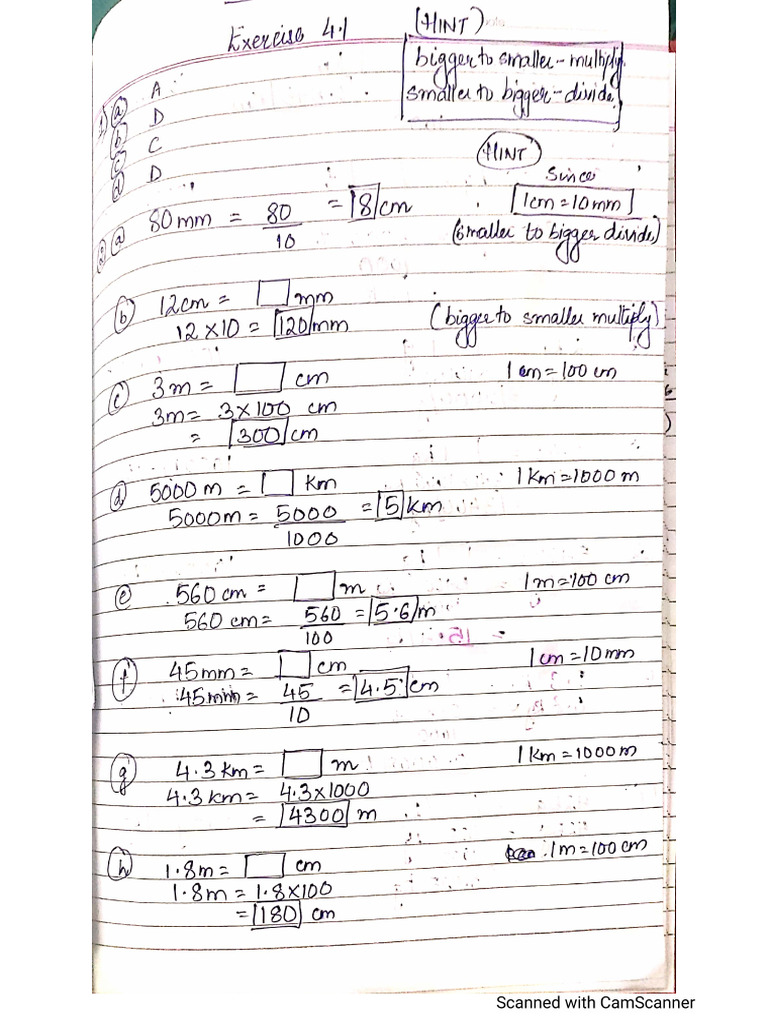 Exercise 4.1 (HINT)
bigger to smaller - multiply
smaller to bigger - divide
1) a A
b D
c C
d D
HINT
Since
2) a 80mm = 80/10 = 8 cm 1cm = 10mm
(smaller to bigger divide)
b 12cm = □ mm
12 × 10 = 120 mm (bigger to smaller multiply)
c 3m = □ cm 1 cm = 100 cm
3m = 3 × 100 cm
= 300 cm
d 5000 m = □ Km 1 Km = 1000 m
5000m = 5000/1000 = 5 Km
e 560 cm = □ m 1m = 100 cm
560 cm = 560/100 = 5.6 m
f 45mm = □ cm 1 cm = 10 mm
45mm = 45/10 = 4.5 cm
g 4.3 km = □ m 1 Km = 1000 m
4.3 km = 4.3 × 1000
= 4300 m
h 1.8m = □ cm 1m = 100 cm
1.8m = 1.8 × 100
= 180 cm
Scanned with CamScanner